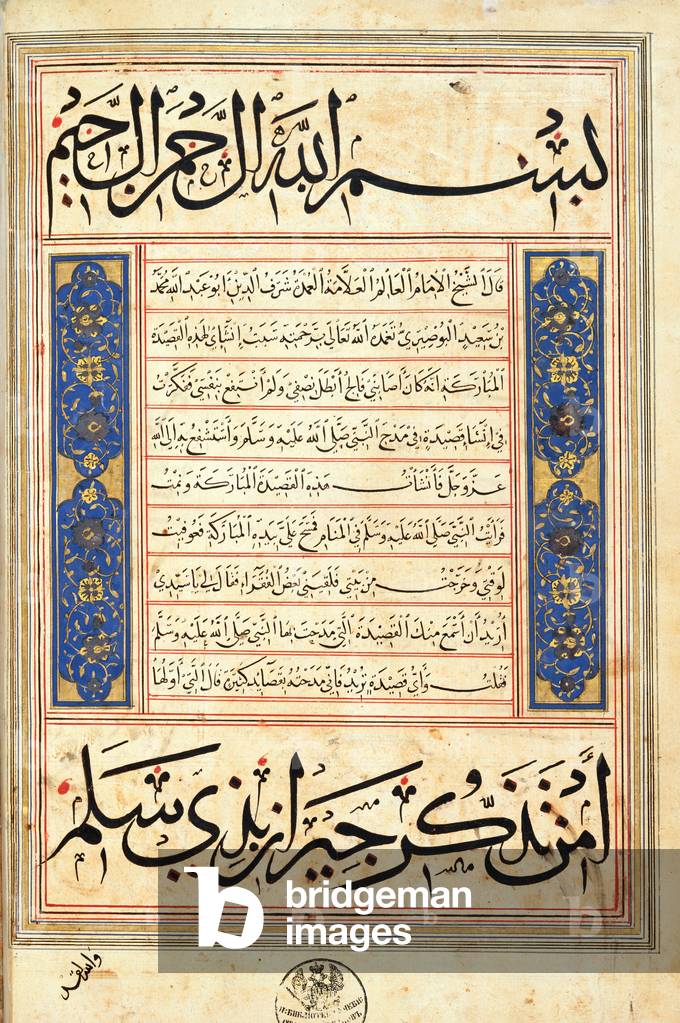 بسم الله الرحمن الرحيم
قال الشيخ الامام العالم العلامة العمدة شرف الدين ابو عبد الله محمد
بن سعيد البوصيري تغمده الله تعالى برحمته سبب إنشاي لهذه القصيدة
المباركة انه كان أصابني فالج أبطل نصفي ولم أنتفع بنفسي ففكرت
في إنشا قصيدة في مدح النبي صلى الله عليه وسلم وأستشفع به الى الله
عز وجل فأنشات هذه القصيدة المباركة ونمت
فرأيت النبي صلى الله عليه وسلم في المنام فمسح علي بيده المباركة فعوفيت
لوقتي وخرجت من بيتي فلقيني بعض الفقراء فقال لي يا سيدي
أريد أن أسمع منك القصيدة التي مدحت بها النبي صلى الله عليه وسلم
فقلت وأي قصيدة تريد فاني مدحته بقصايد كثيرة قال التي أولها
أمن تذكر جيران بذي سلم
bridgeman
images